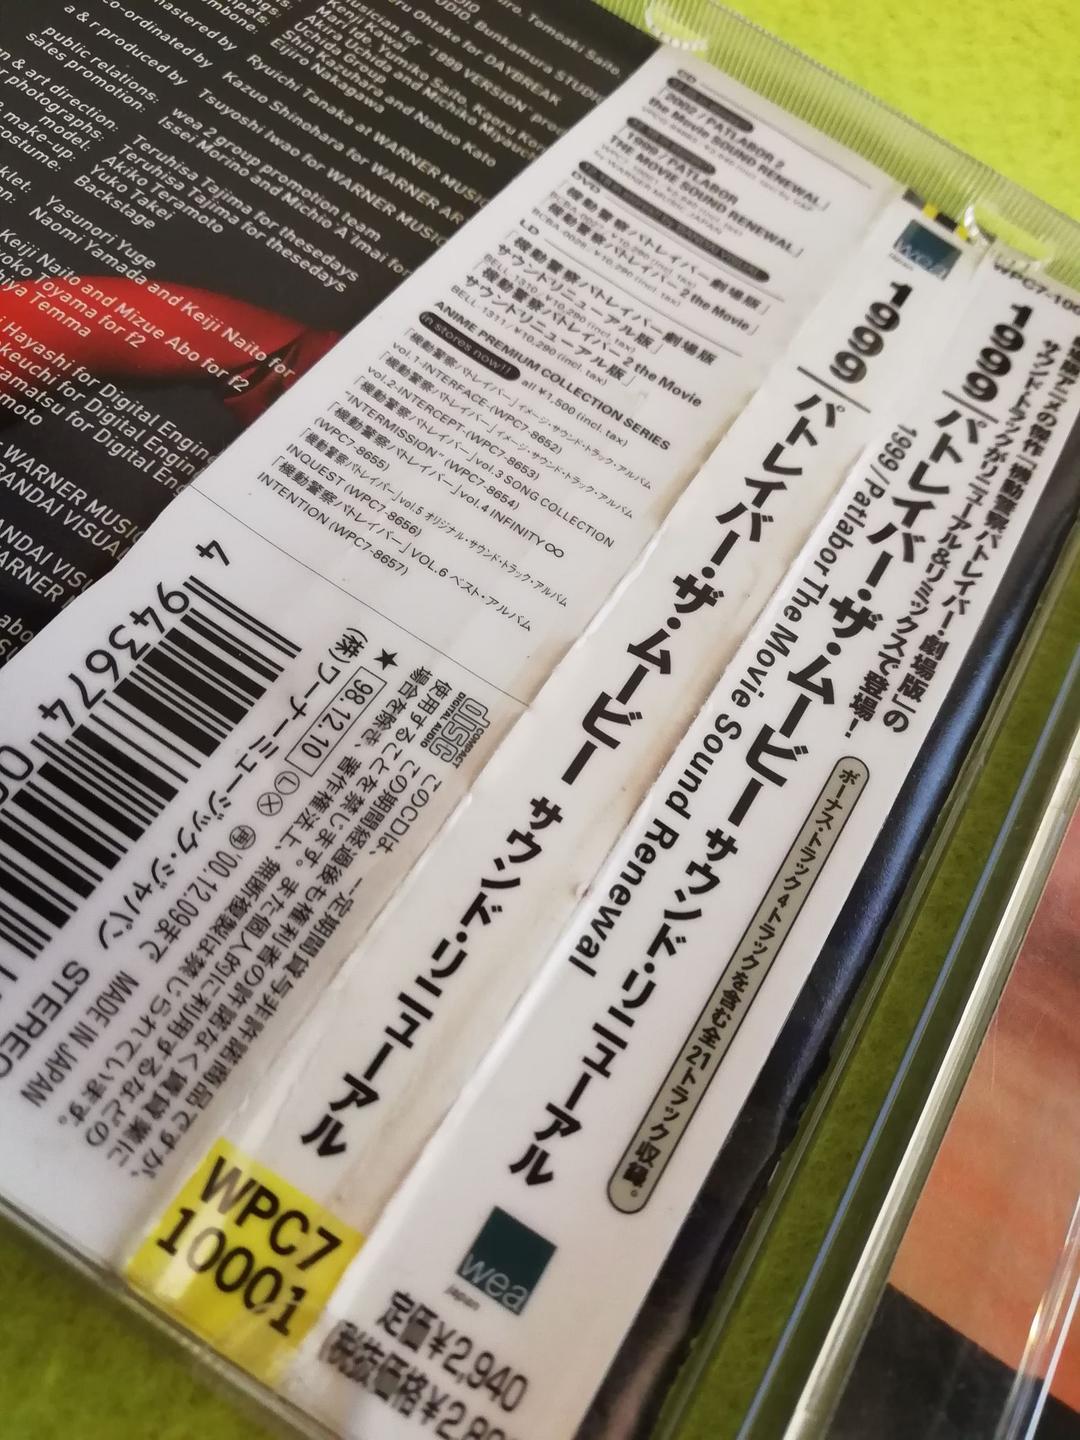 STUDIO, Bunkamura STUDIO
Ohtake for DAYBREAK
musician for "1999 VERSION"
Kenji Kawai
Mar Ide, Yumiko Saito
Uchida Group
Shin Kazuhara and Nobuo Kato
Eijiro Nakagawa
mastered by Ryuichi Tanaka at WARNER MUSIC
co-ordinated by Kazuo Shinohara for WARNER MUSIC
a & r produced by Tsuyoshi Iwao for WARNER MUSIC
public relations: wea 2 group promotion team
sales promotion: Issei Morino and Michio A Imai for
& art direction: Teruhisa Tajima for thesedays
photographs: Teruhisa Tajima for thesedays
model: Akiko Teramoto
make-up: Yuko Takei
costume: Backstage
Yasunori Yuge
Naomi Yamada and Keiji Naito for
Keiji Naito and Mizue Abo for f2
Toyama for f2
Temma
Hayashi for Digital Engin
for Digital Engin
for Digital Eng
WARNER MUSIC
BANDAI VISUAL
CD
「2002/PATLABOR 2
the Movie SOUND RENEWAL」
「1999/PATLABOR
THE MOVIE SOUND RENEWAL」
by WARNER MUSIC JAPAN
DVD
「機動警察パトレイバー劇場版」
¥10,290 (incl. tax)
「機動警察パトレイバー2 the Movie」
BCBA-0028 ¥10,290 (incl. tax)
LD
「機動警察パトレイバー劇場版
サウンドリニューアル版」
BELL-1310/¥10,290 (incl. tax)
「機動警察パトレイバー2 the Movie
サウンドリニューアル版」
BELL-1311/¥10,290 (incl. tax)
ANIME PREMIUM COLLECTION SERIES
in stores now!! all ¥1,500 (incl. tax)
「機動警察パトレイバー」イメージ・サウンド・トラック・アルバム
vol.1-INTERFACE-(WPC7-8652)
「機動警察パトレイバー」イメージ・サウンド・トラック・アルバム
vol.2-INTERCEPT-(WPC7-8653)
「機動警察パトレイバー」vol.3 SONG COLLECTION
"INTERMISSION" (WPC7-8654)
「機動警察パトレイバー」vol.4 INFINITY∞
(WPC7-8655)
「機動警察パトレイバー」vol.5 オリジナル・サウンド・トラック・アルバム
INQUEST (WPC7-8656)
「機動警察パトレイバー」VOL.6 ベスト・アルバム
INTENTION (WPC7-8657)
4 943674
COMPACT
disc
DIGITAL AUDIO
このCDは、一定期間貸与非許諾商品ですが、
この期間経過後も権利者の許諾なく賃貸業に
使用することを禁じます。また個人的に利用するなどの
場合を除き、著作権法上、無断複製は禁じられています。
★ 98.12.10 Ⓛ Ⓧ ㊢ '00.12.09まで MADE IN JAPAN
(株)ワーナーミュージック・ジャパン STEREO
wea
japan
1999 パトレイバー・ザ・ムービー サウンド・リニューアル
WPC7
10001
WPC7-100
1999 パトレイバー・ザ・ムービー サウンド・リニューアル
1999/Patlabor The Movie Sound Renewal
劇場版アニメの傑作「機動警察パトレイバー・劇場版」の
サウンドトラックがリニューアル&リミックスで登場!
ボーナス・トラック4トラックを含む全21トラック収録。
wea
japan
定価¥2,940
(税抜価格¥2,80